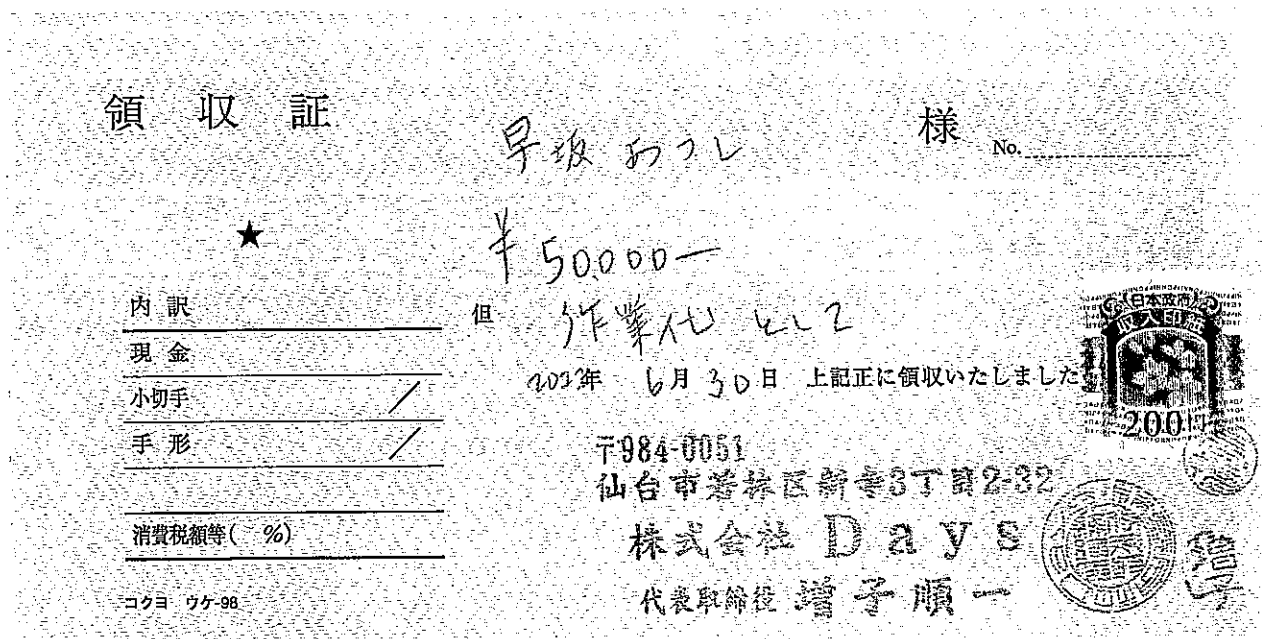 領収証
早坂 あつし 様
No.
★
¥50,000ー
但 作業代として
2023年 6月 30日 上記正に領収いたしました
内訳
現金
小切手 /
手形 /
消費税額等( %)
コクヨ ウケ-98
日本政府
収入印紙
200円
〒984-0051
仙台市若林区新寺3丁目2-32
株式会社 Days
代表取締役 増子順一